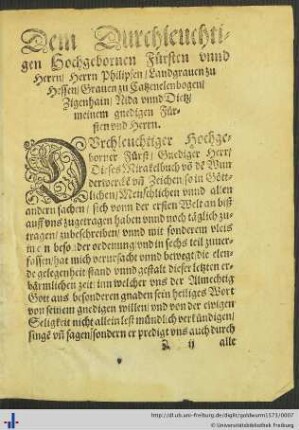 Dem Durchleuchti-
gen Hochgebornen Fürsten vnnd
Herrn/ Herrn Philipsen/ Landgrauen zu
Hessen/ Grauen zu Catzenelenbogen/
Zigenhain/ Nida vnnd Dietz/
meinem gnedigen Für-
sten vnd Herrn.
DVrchleuchtiger Hochge-
borner Fürst/ Gnediger Herr/
Dises Mirakelbuch võ dẽ Wun
derwerckẽ vñ Zeichen/ so in Gött-
lichen/ Menschlichen vnnd allen
andern sachen/ sich vonn der ersten Welt an biß
auff vns zugetragen haben vnnd noch täglich zu-
tragen/ zubeschreiben/ vnnd mit sonderem vleis
in ein besonder ordenung/ vnd in sechs teil zuuer-
fassen/ hat mich verursacht vnnd bewegt/ die elen-
de gelegenheit stand vnnd gestalt dieser letzten er-
bärmlichen zeit: inn welcher vns der Allmechtig
Gott aus besonderen gnaden sein heiliges Wort
von seinem gnedigen willen/ vnd von der ewigen
Seligkeit nicht allein lest mündlich verkündigen/
singẽ vñ sagen/ sondern er predigt vns auch durch
A ij alle
http://dl.ub.uni-freiburg.de/diglit/goldwurm1573/0007
© Universitätsbibliothek Freiburg